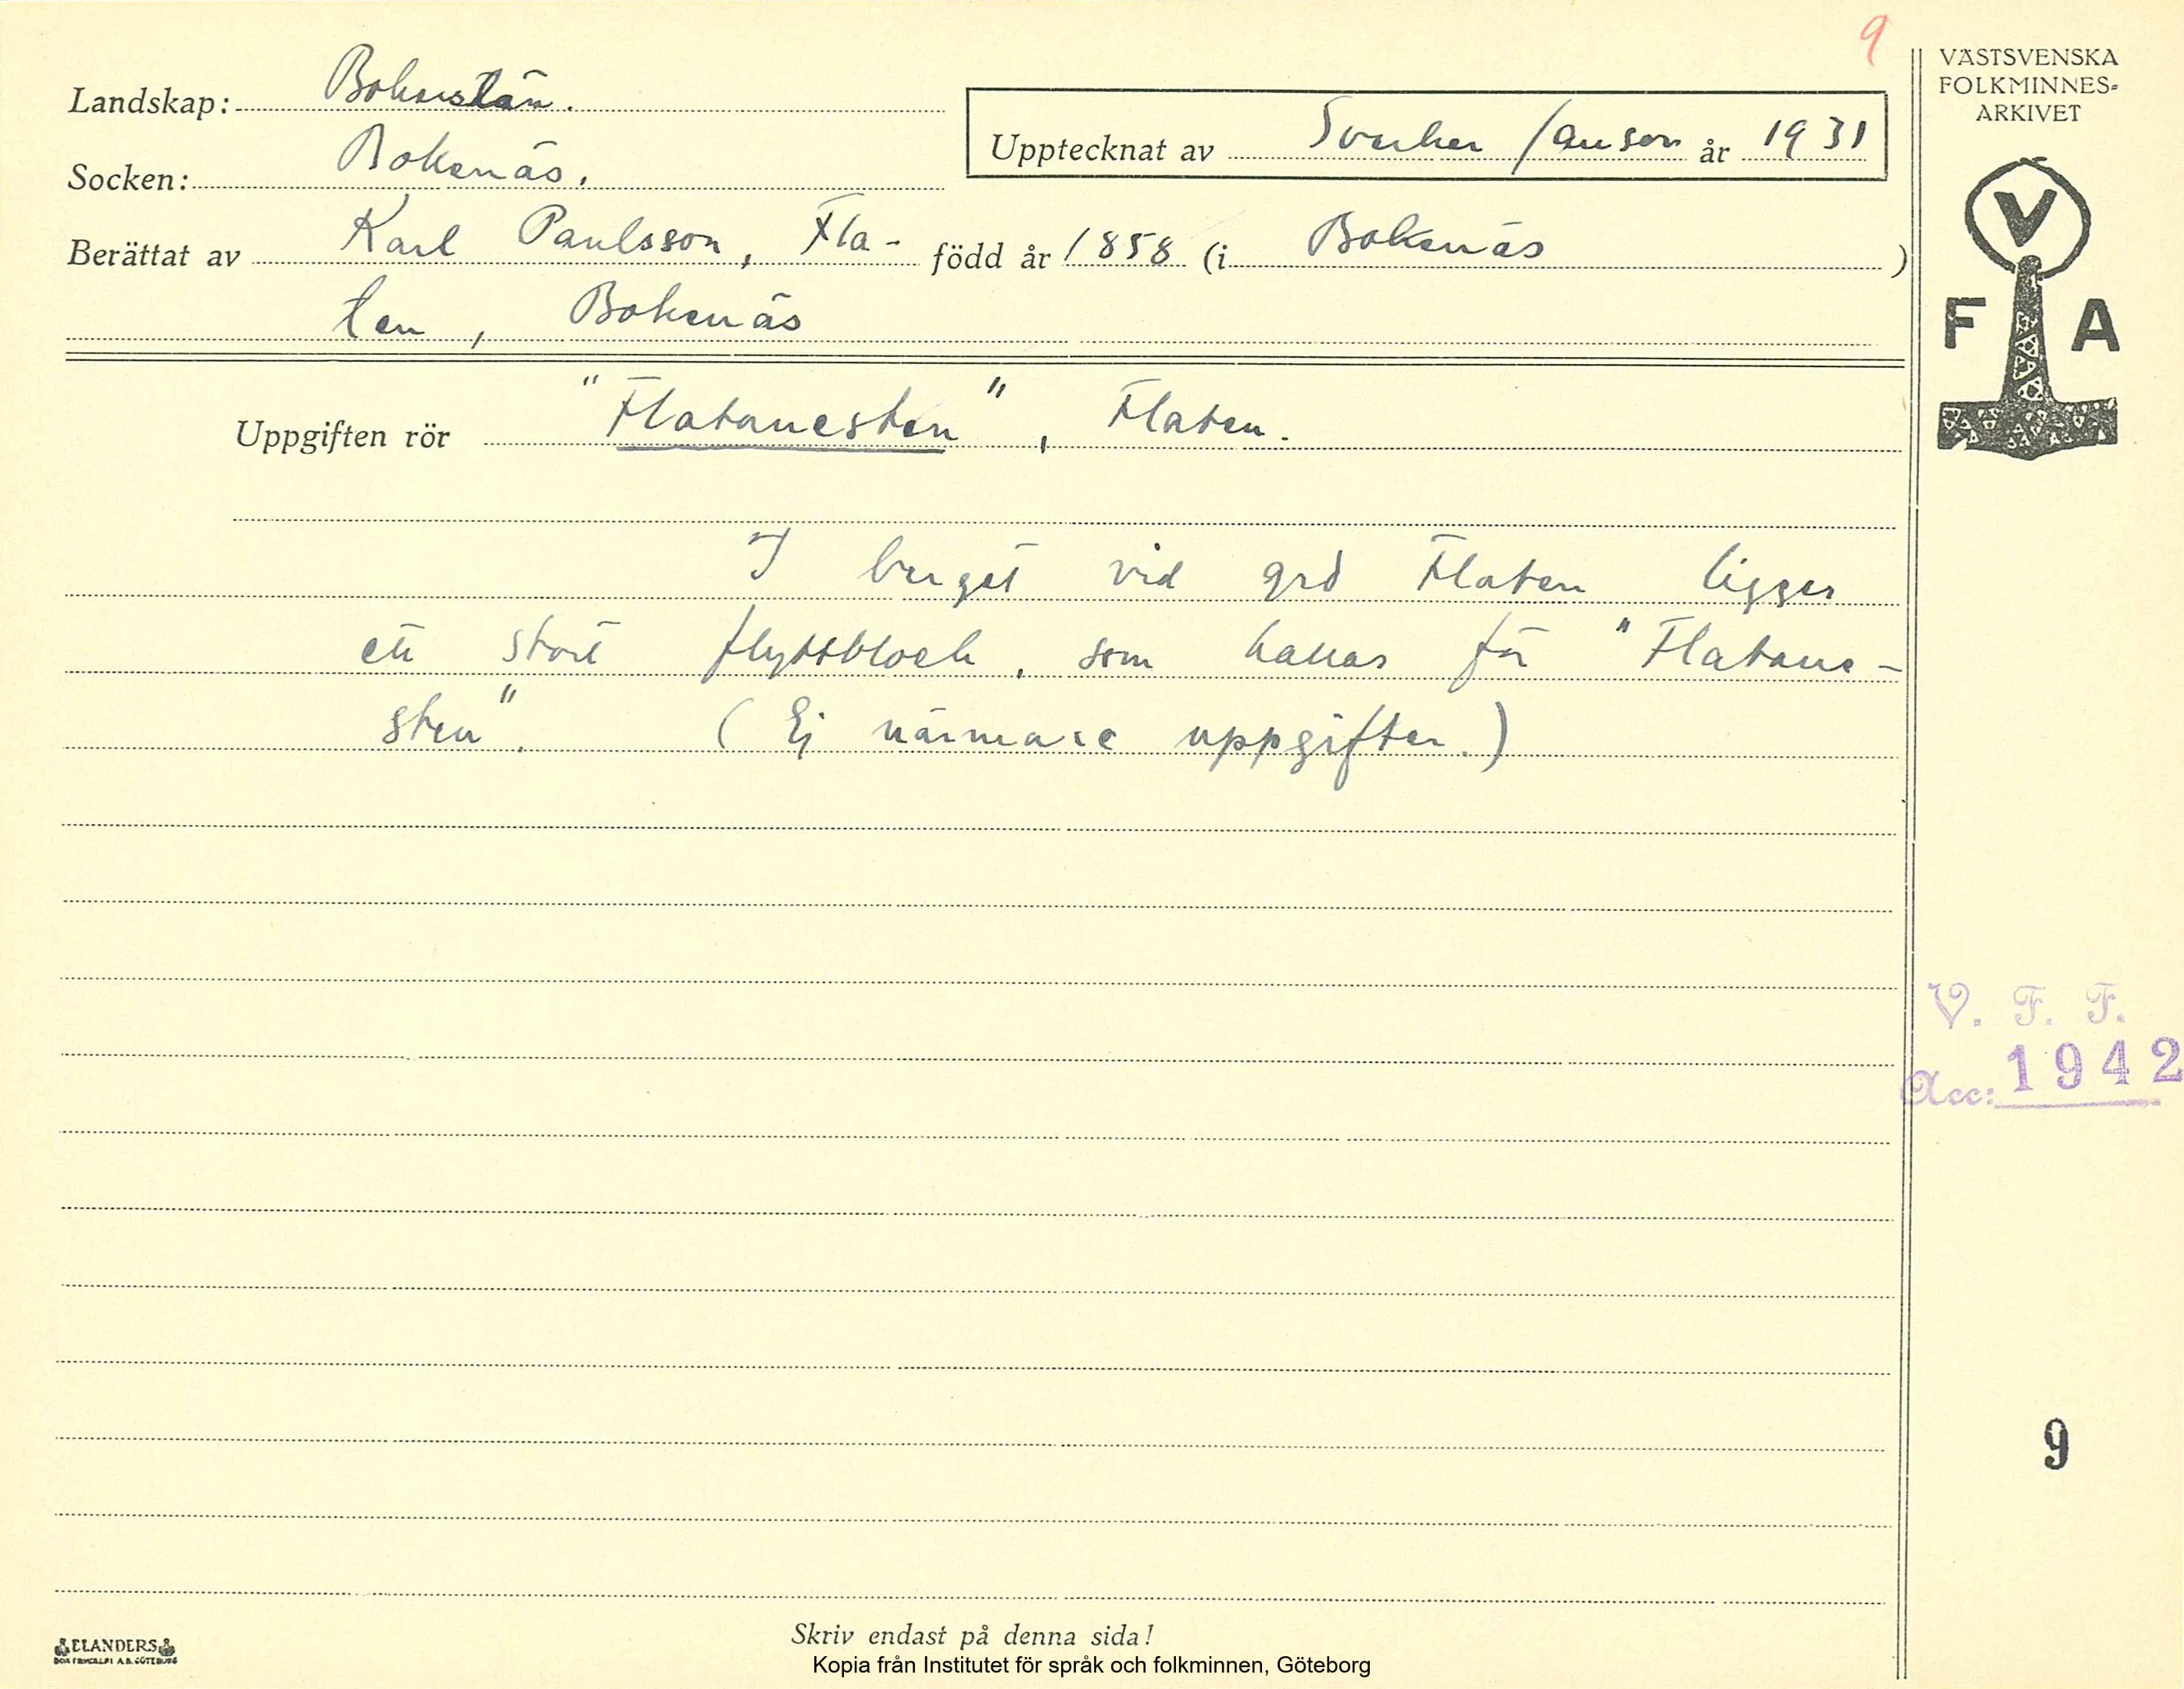 9
VÄSTSVENSKA
FOLKMINNES=
ARKIVET
Landskap: Bohuslän.
Upptecknat av Sverker Janson år 1931
Socken: Bokenäs.
Berättat av Karl Paulsson, Fla- född år 1858 (i Bokenäs)
ten, Bokenäs
V
F A
Uppgiften rör "Flatanesten", Flaten.
I berget vid grd Flaten ligger
ett stort flyttblock, som kallas för "Flatane-
sten". (Ej närmare uppgifter.)
V. F. F.
Acc: 1942
9
Skriv endast på denna sida!
ELANDERS
BOKTRYCKERI A.B. GÖTEBORG
Kopia från Institutet för språk och folkminnen, Göteborg